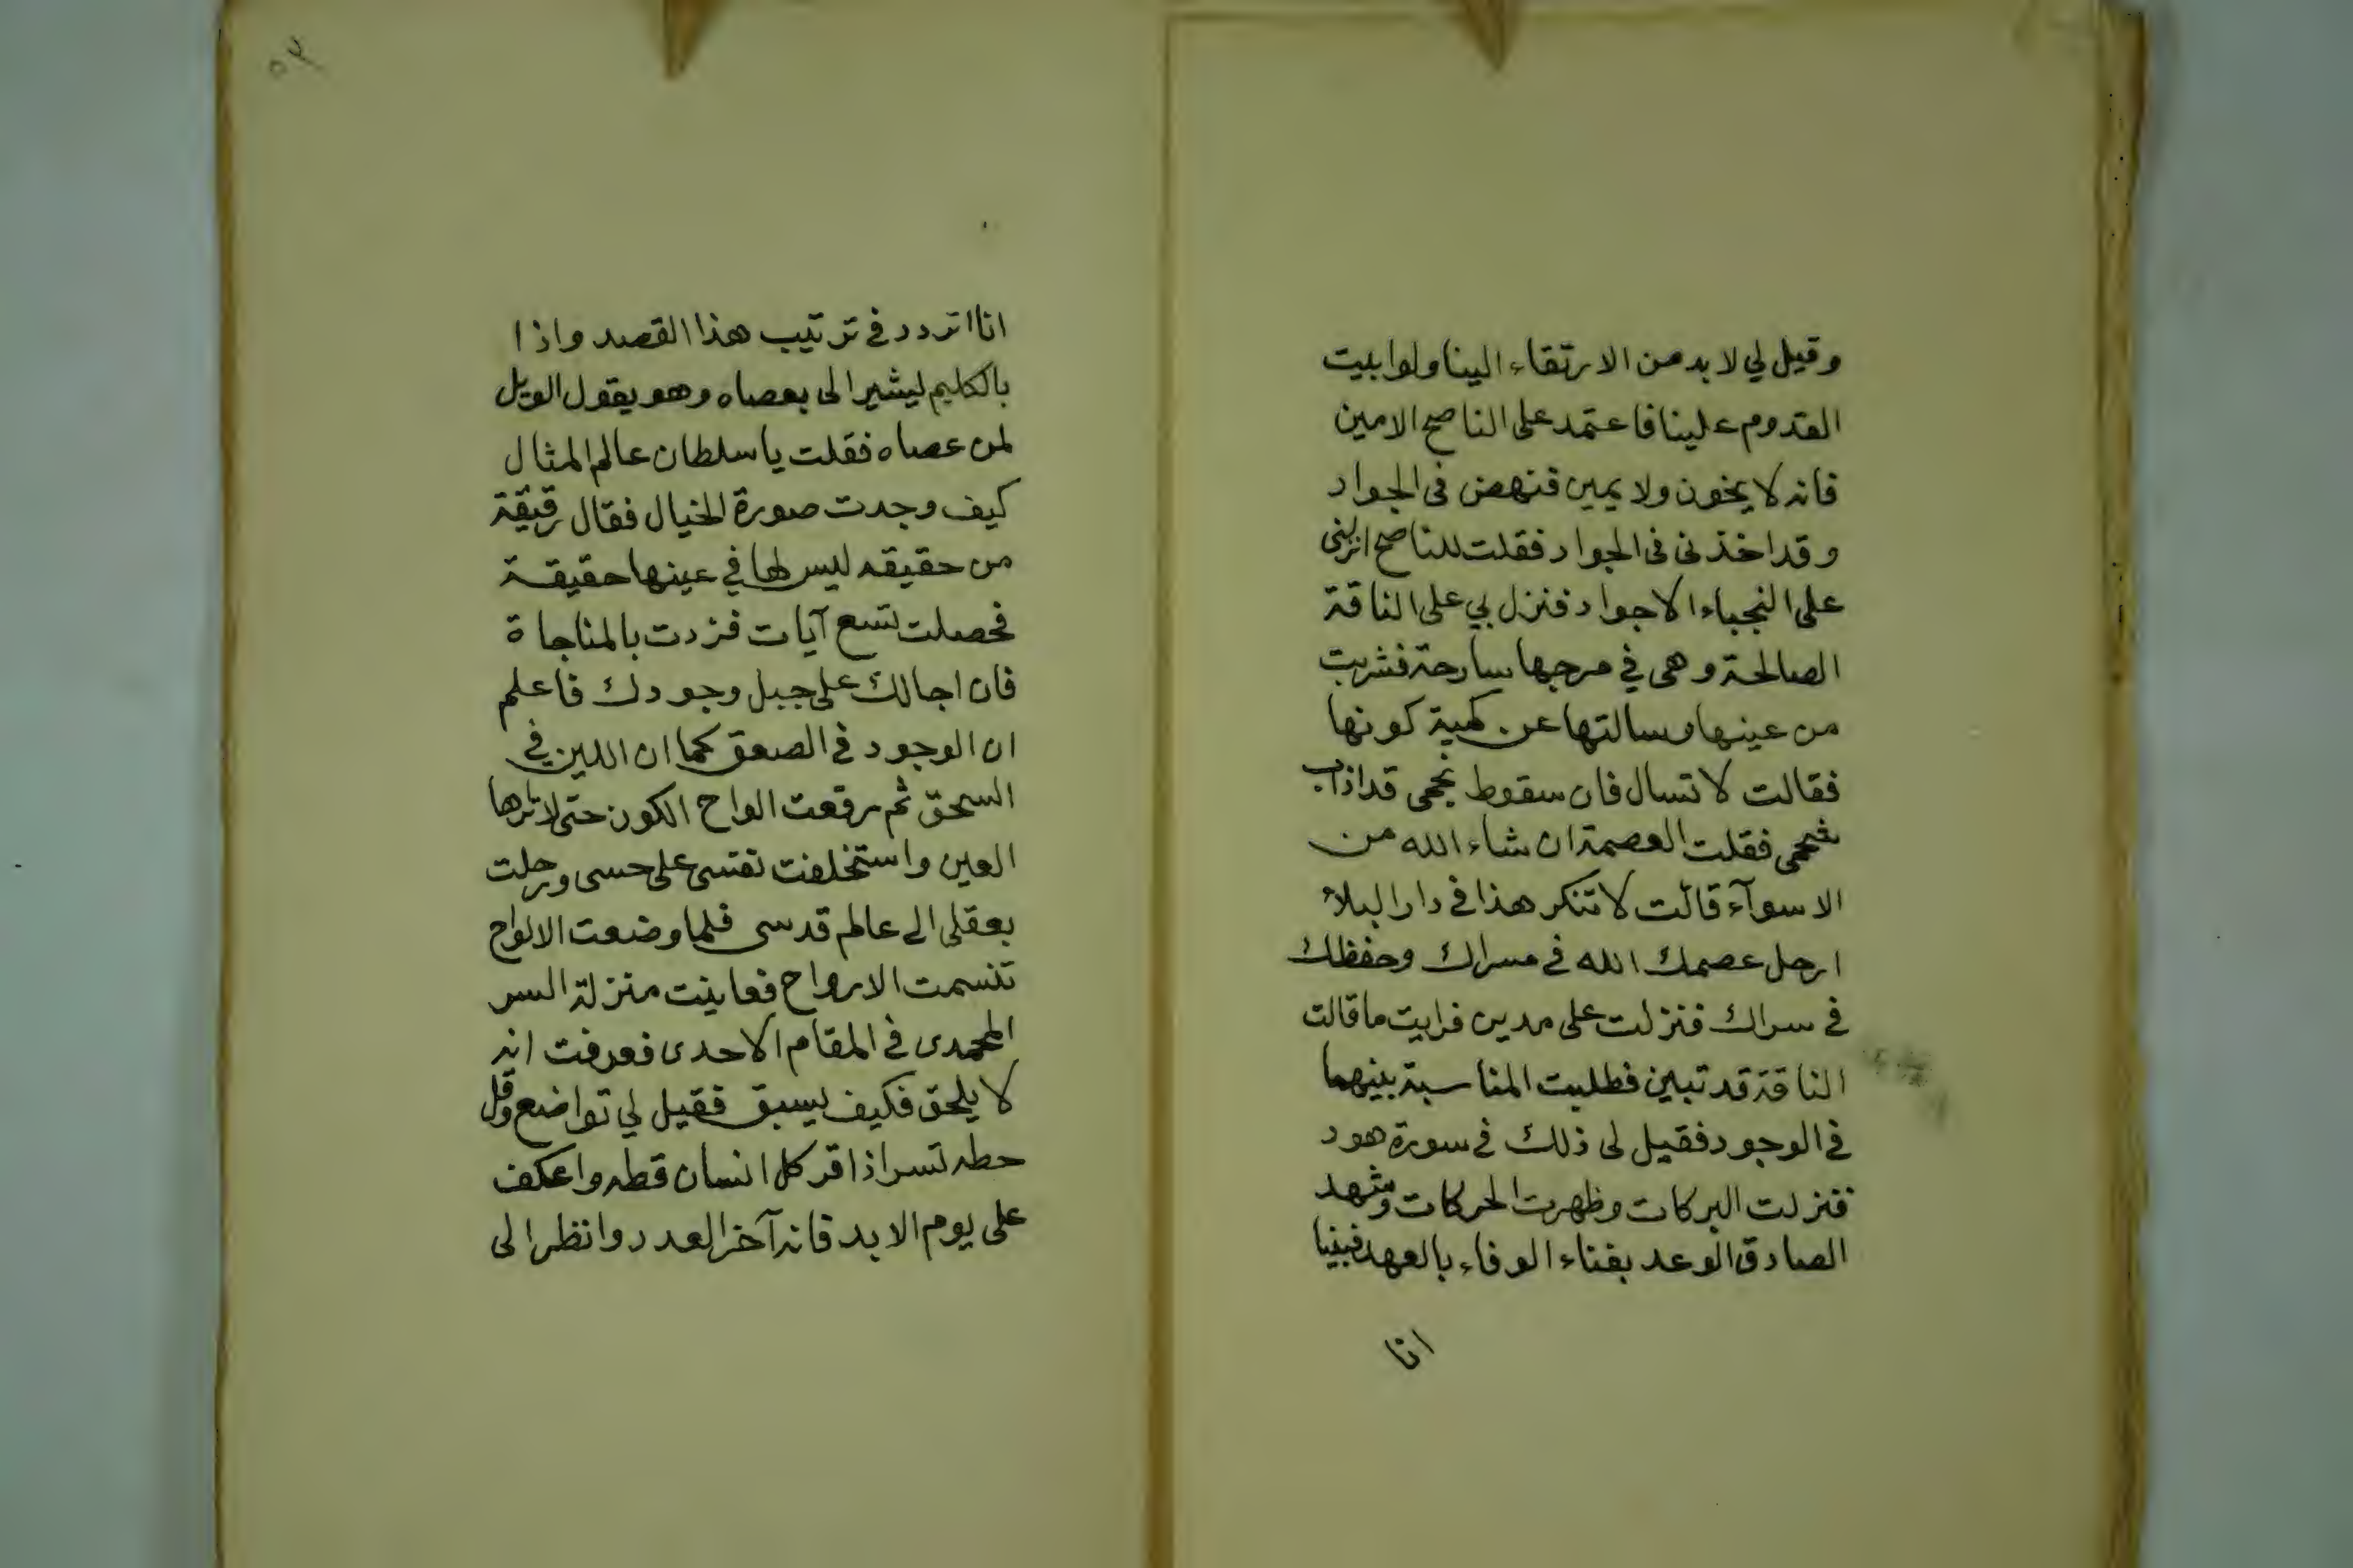 وقيل لي لا بد من الارتقاء الينا ولو ابيت
القدوم علينا فاعتمد على الناصح الامين
فانه لا يخون ولا يمين فنهض فى الجواد
وقد اخذ نى فى الجواد فقلت للناصح انزلنى
على النجباء الاجواد فنزل بي على الناقة
الصالحة وهى في مرجها سارحة فشربت
من عينها وسالتها عن كمية كونها
فقالت لا تسال فان سقوط نجمى قد اذاب
شحمى فقلت العصمة ان شاء الله من
الاسوآء قالت لا تنكر هذا في دار البلاء
ارحل عصمك الله في مسراك وحفظك
في سراك فنزلت على مدين فرايت ما قالت
الناقة قد تبين فطلبت المناسبة بينهما
في الوجود فقيل لى ذلك في سورة هود
فنزلت البركات وظهرت الحركات وشهد
الصادق الوعد بفناء الوفاء بالعهد فبينا
انا
٥٣
انا اتردد في ترتيب هذا القصد واذا
بالكليم ليشير الى بعصاه وهو يقول الويل
لمن عصاه فقلت يا سلطان عالم المثال
كيف وجدت صورة الخيال فقال رقيقة
من حقيقه ليس لها في عينها حقيقة
فحصلت تسع آيات فزدت بالمناجاة
فان اجالك على جبل وجودك فاعلم
ان الوجود في الصعق كما ان اللين في
السحق ثم رقعت الواح الكون حتى لا تراها
العين واستخلفت نفسى على حسى ورحلت
بعقلى الى عالم قدسى فلما وضعت الالواح
تنسمت الارواح فعاينت منزلة السر
المحمدى في المقام الاحدى فعرفت انه
لا يلحق فكيف يسبق فقيل لي تواضع وقل
حطه تسر اذا قر كل انسان قطه واعكف
على يوم الابد فانه آخر العدد وانظر الى